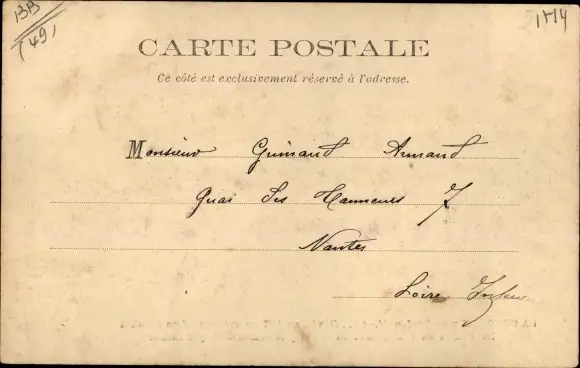 BB
(49)
1714
CARTE POSTALE
Ce côté est exclusivement réservé à l'adresse.
Monsieur Guinaud Armand
Quai des Tanneurs 7
Nantes
Loire Infre